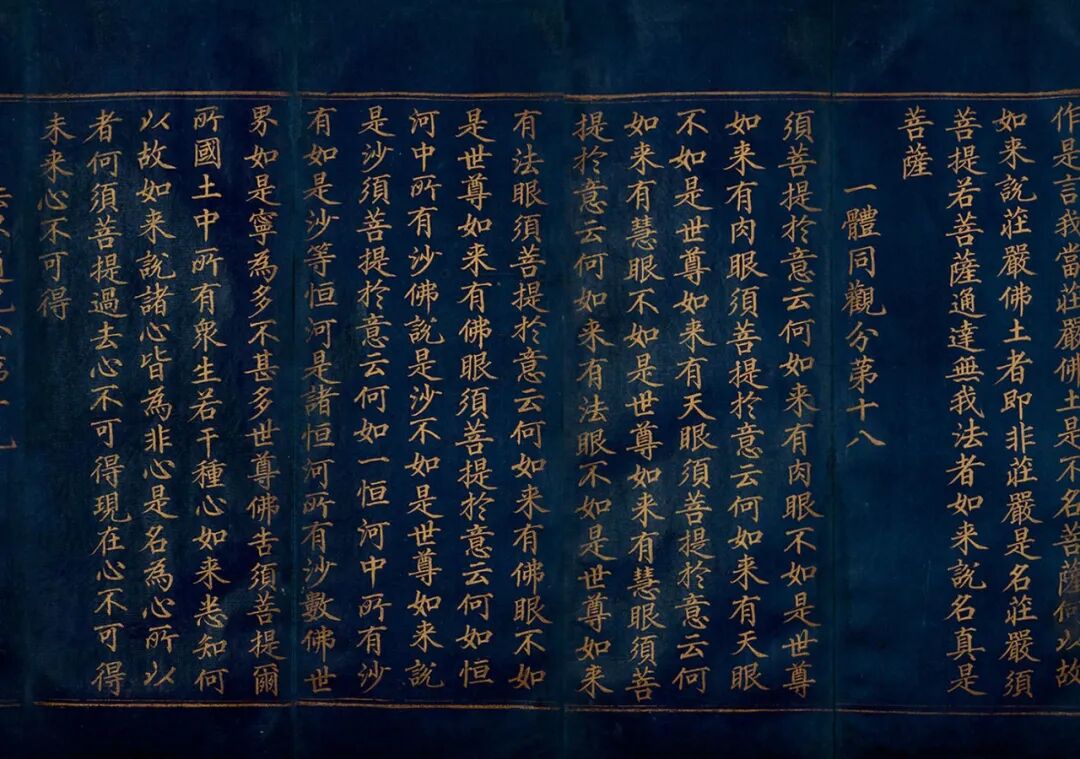 作是言我當莊嚴佛土是不名菩薩何以故
如来說莊嚴佛土者即非莊嚴是名莊嚴須
菩提若菩薩通達無我法者如来說名真是
菩薩
一體同觀分第十八
須菩提於意云何如来有肉眼不如是世尊
如来有肉眼須菩提於意云何如来有天眼
不如是世尊如来有天眼須菩提於意云何
如来有慧眼不如是世尊如来有慧眼須菩
提於意云何如来有法眼不如是世尊如来
有法眼須菩提於意云何如来有佛眼不如
是世尊如来有佛眼須菩提於意云何如恒
河中所有沙佛說是沙不如是世尊如来說
是沙須菩提於意云何如一恒河中所有沙
有如是沙等恒河是諸恒河所有沙數佛世
界如是寧為多不甚多世尊佛告須菩提爾
所國土中所有衆生若干種心如来悉知何
以故如来說諸心皆為非心是名為心所以
者何須菩提過去心不可得現在心不可得
未来心不可得